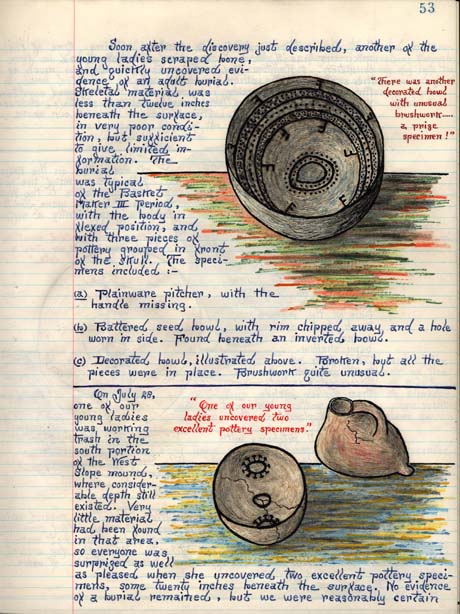 53
Soon after the discovery just described, another of the
young ladies scraped bone,
and quickly uncovered evi-
dence of an adult burial.
Skeletal material was
less than twelve inches
beneath the surface,
in very poor condi-
tion, but sufficient
to give limited in-
formation. The
burial
was typical
of the Basket
Maker III Period,
with the body in
flexed position, and
with three pieces of
pottery grouped in front
of the skull. The speci-
mens included :-
"There was another
decorated bowl
with unusual
brushwork....
a prize
specimen!"
(a) Plainware pitcher, with the
handle missing.
(b) Battered seed bowl, with rim chipped away, and a hole
worn in side. Found beneath an inverted bowl.
(c) Decorated bowl, illustrated above. Broken, but all the
pieces were in place. Brushwork quite unusual.
On July 28,
one of our
young ladies
was working
trash in the
south portion
of the West
Slope mound,
where consider-
able depth still
existed. Very
little material
had been found
in that area,
so everyone was
surprized as well
as pleased when she uncovered two excellent pottery speci-
mens, some twenty inches beneath the surface. No evidence
of a burial remained, but we were reasonably certain
"One of our young
ladies uncovered two
excellent pottery specimens."